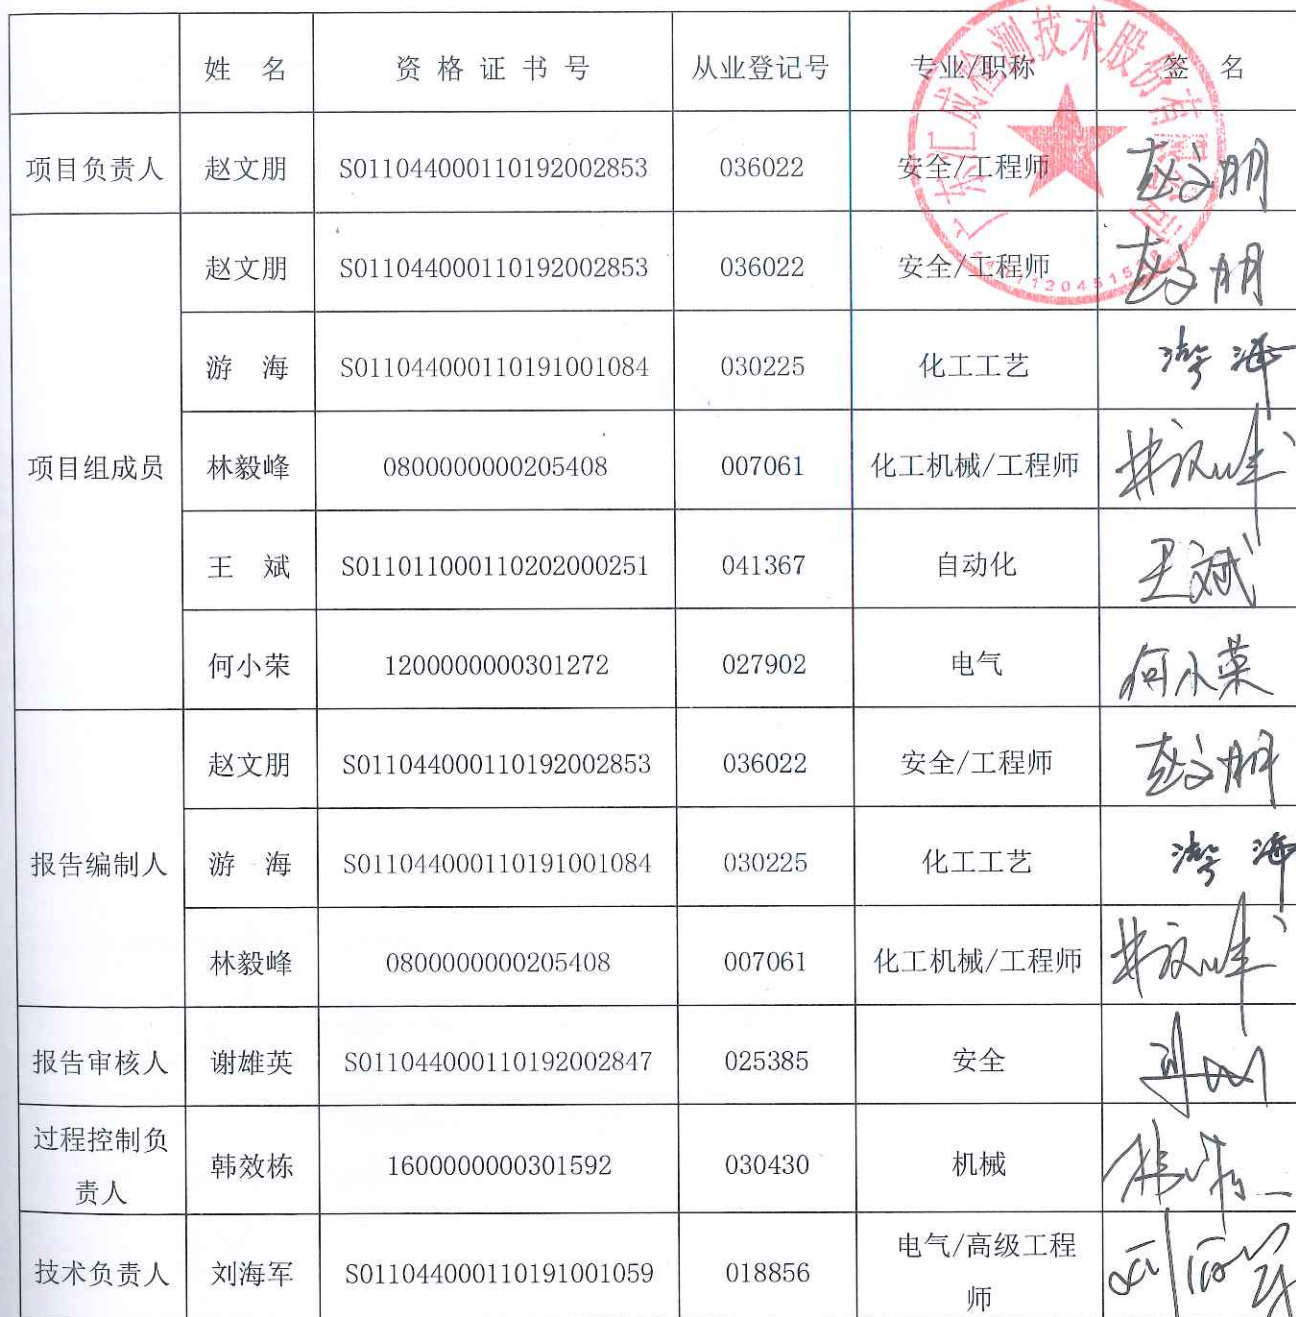 姓 名 资 格 证 书 号 从业登记号 专业/职称 签 名
项目负责人 赵文朋 S011044000110192002853 036022 安全/工程师 赵文朋
项目组成员 赵文朋 S011044000110192002853 036022 安全/工程师 赵文朋
游 海 S011044000110191001084 030225 化工工艺 游海
林毅峰 0800000000205408 007061 化工机械/工程师 林毅峰
王 斌 S011011000110202000251 041367 自动化 王斌
何小荣 1200000000301272 027902 电气 何小荣
报告编制人 赵文朋 S011044000110192002853 036022 安全/工程师 赵文朋
游 海 S011044000110191001084 030225 化工工艺 游海
林毅峰 0800000000205408 007061 化工机械/工程师 林毅峰
报告审核人 谢雄英 S011044000110192002847 025385 安全
过程控制负
责人 韩效栋 1600000000301592 030430 机械
技术负责人 刘海军 S011044000110191001059 018856 电气/高级工程
师 刘海军
广东汇成检测技术股份有限公司